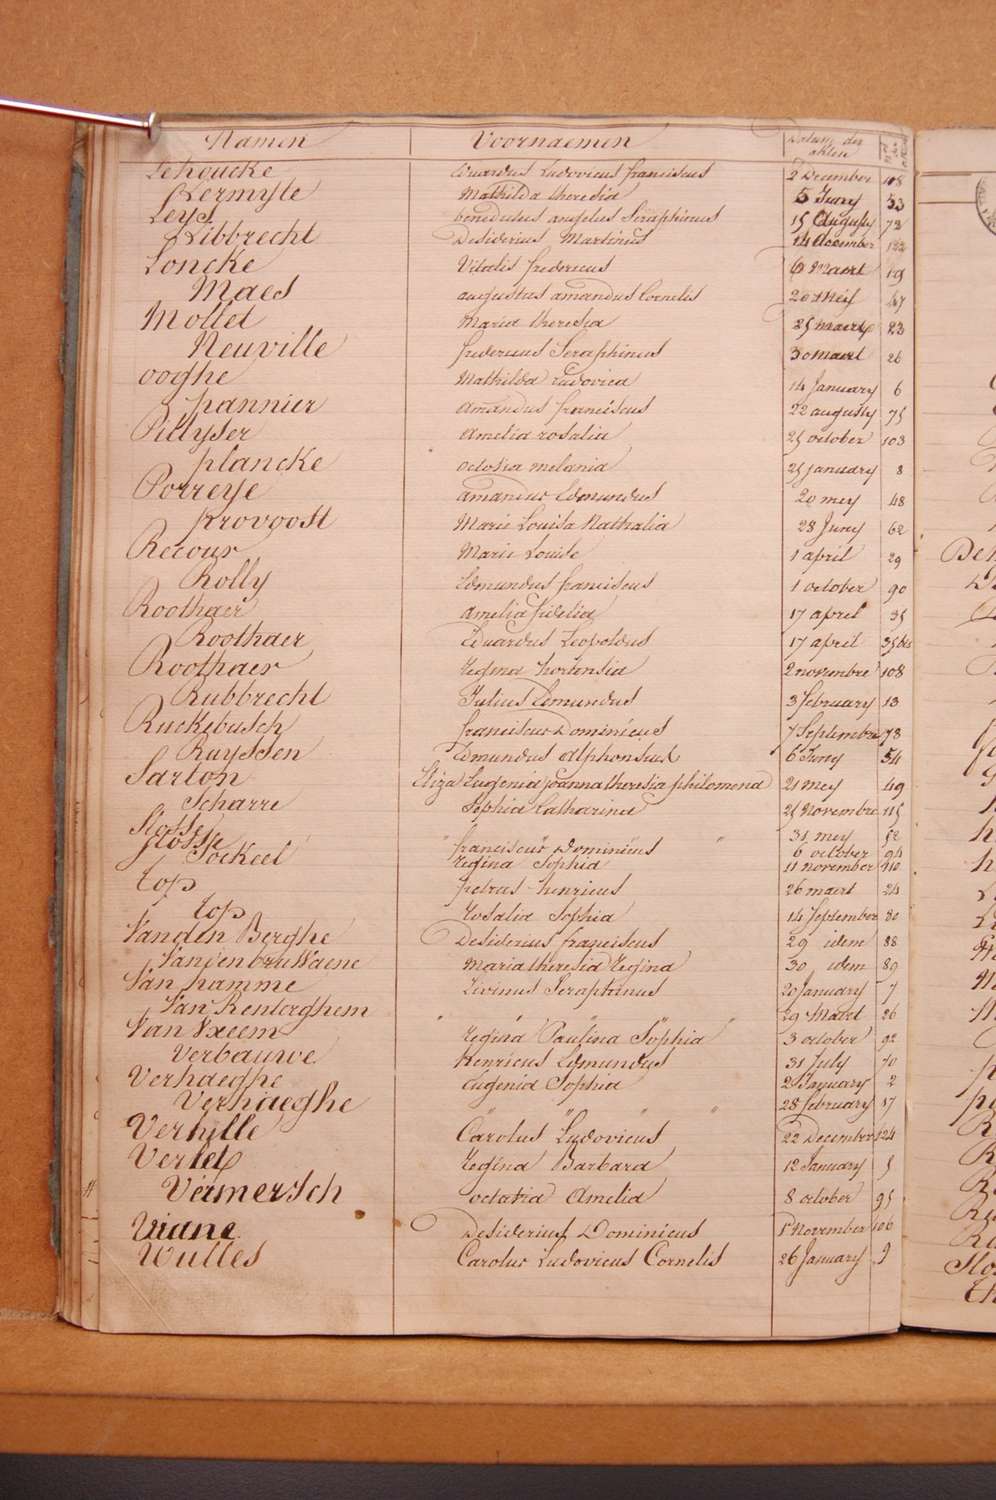 Namen Voornaemen Datum der akten
Lehoucke Eduardus Ludovicus franciscus 2 December 118
Kermyte Mathilda theresia 5 Juny 53
Leys benedictus angelus Seraphinus 15 Augusty 72
Libbrecht Desiderius Martinus 14 december 122
Loncke Vitalis fredericus 6 Maert 19
Maes augustus amandus Cornelis 20 Meij 47
Mollet Maria theresia 25 maert 23
Neuville fredericus Seraphinus 30 maert 26
ooghe Mathilda Ludovica 14 January 6
pannier amandus franciscus 22 augusty 75
Pillyser amelia rosalia 25 october 103
plancke octavia melania 25 january 8
Porreye amandus Edmundus 20 mey 48
provoost Marie Louisa Nathalia 28 Juny 62
Recour Marie Louise 1 april 29
Rolly Edmundus franciscus 1 october 90
Roothaer amelia fidelia 17 april 35
Roothaer Eduardus Leopoldus 17 april 35 bis
Roothaer Regina hortensia 2 novembre 108
Rubbrecht Julius Edmundus 3 february 13
Ruckebusch franciscus Dominicus 7 Septembre 78
Ruyssen Edmundus alphonsus 6 Juny 54
Sarton Eliza Eugenia joanna theresia philomena 21 mey 49
Scharre Sophia Catharina 25 Novembre 115
Slosse 31 mey 52
Slosse " franciscus " Dominicus " 6 october 94
Sockeel Regina Sophia 11 november 110
top petrus henricus 26 maert 24
top Rosalia Sophia 14 September 80
Vanden Berghe Desiderius franciscus 29 idem 88
Vandenbruwaene Maria theresia Regina 30 idem 89
Van hamme Livinus Seraphinus 20 January 7
Van Renterghem " " " " 29 Maert 26
Van Vxeem Regina Paulina Sophia 3 october 92
Verbauwe Henricus Edmundus 31 July 70
Verhaeghe Eugenia Sophia 2 January 2
Verhaeghe " " " 28 february 17
Verhille Carolus Ludovicus 22 December 124
Verlet Regina Barbara 12 January 5
Vermersch octavia Amelia 8 october 95
Viane Desiderius Dominicus 1 November 106
Wulles Carolus Ludovicus Cornelis 26 January 9